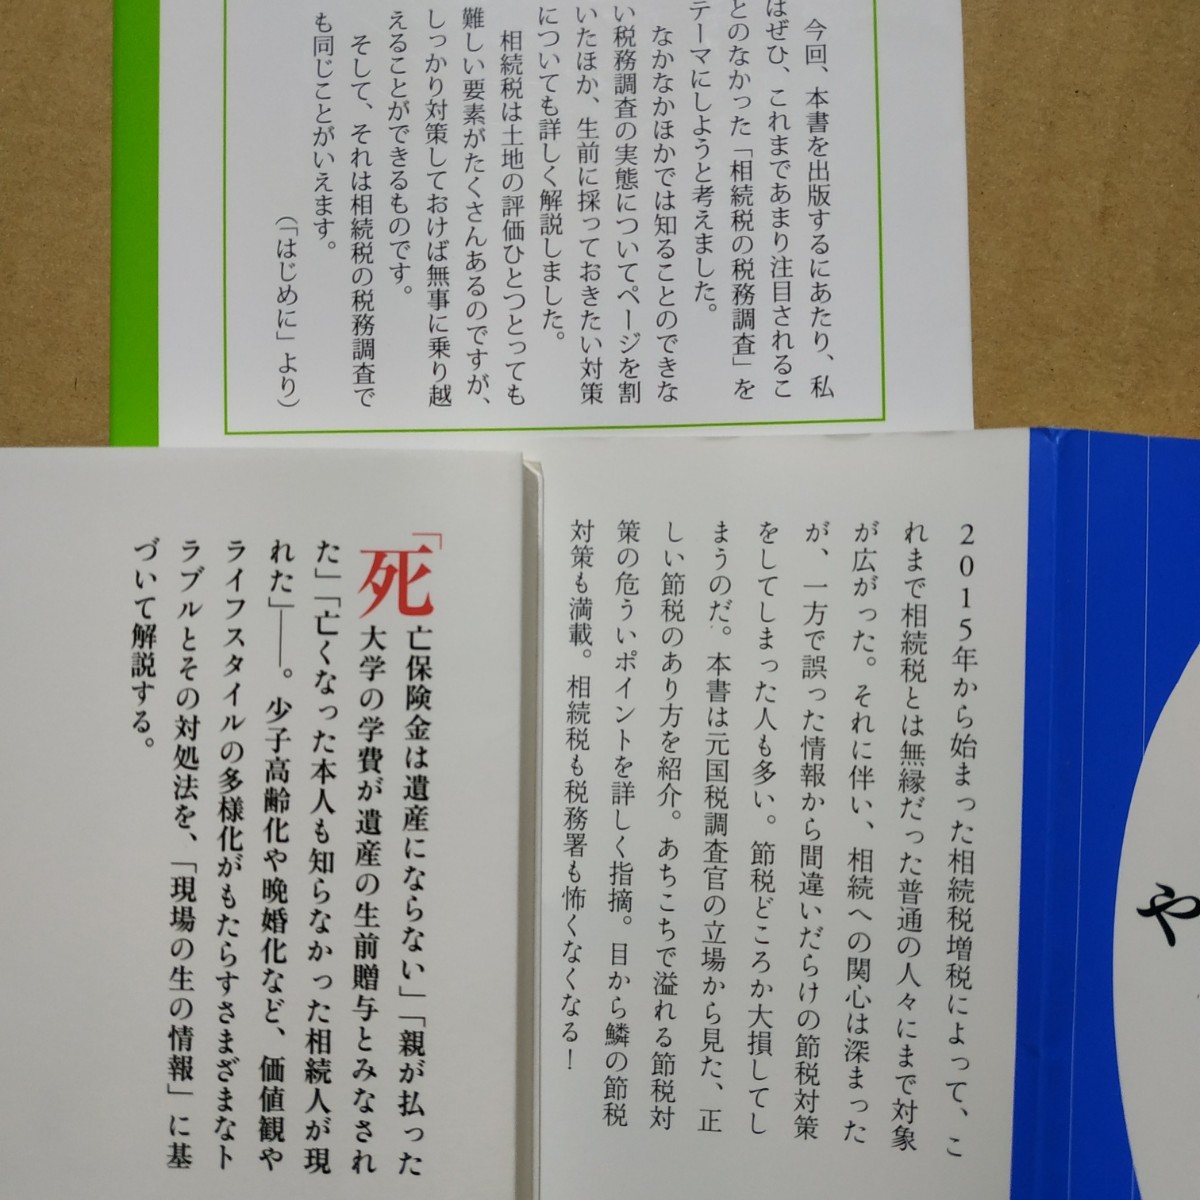 今回、本書を出版するにあたり、私
はぜひ、これまであまり注目されるこ
とのなかった「相続税の税務調査」を
テーマにしようと考えました。
なかなかほかでは知ることのできな
い税務調査の実態についてページを割
いたほか、生前に採っておきたい対策
についても詳しく解説しました。
相続税は土地の評価ひとつとっても
難しい要素がたくさんあるのですが、
しっかり対策しておけば無事に乗り越
えることができるものです。
そして、それは相続税の税務調査で
も同じことがいえます。
（「はじめに」より）
2015年から始まった相続税増税によって、こ
れまで相続税とは無縁だった普通の人々にまで対象
が広がった。それに伴い、相続への関心は深まった
が、一方で誤った情報から間違いだらけの節税対策
をしてしまった人も多い。節税どころか大損してし
まうのだ。本書は元国税調査官の立場から見た、正
しい節税のあり方を紹介。あちこちで溢れる節税対
策の危ういポイントを詳しく指摘。目から鱗の節税
対策も満載。相続税も税務署も怖くなくなる！
「死亡保険金は遺産にならない」「親が払った
大学の学費が遺産の生前贈与とみなされ
た」「亡くなった本人も知らなかった相続人が現
れた」――。少子高齢化や晩婚化など、価値観や
ライフスタイルの多様化がもたらすさまざまなト
ラブルとその対処法を、「現場の生の情報」に基
づいて解説する。
や